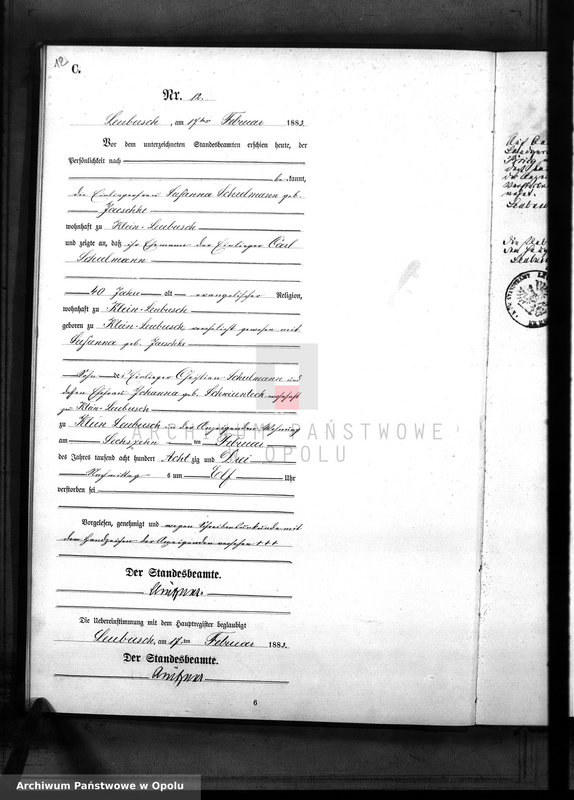 12
C.
Nr. 12.
Leubusch, am 17ten Februar 1883.
Vor dem unterzeichneten Standesbeamten erschien heute, der
Persönlichkeit nach
be kannt,
die Einliegerfrau Susanna Schulmann geb.
Jaeschke
wohnhaft zu Klein-Leubusch
und zeigte an, daß ihr Ehemann der Einlieger Carl
Schulmann
40 Jahre alt evangelischer Religion,
wohnhaft zu Klein-Leubusch
geboren zu Klein-Leubusch verehelicht gewesen mit
Susanna geb. Jaeschke
Sohn des Einlieger Christian Schulmann und
dessen Ehefrau Johanna geb. wohnhaft
zu Klein-Leubusch
zu Klein Leubusch in der Anzeigenden Wohnung
am Sechszehn ten Februar
des Jahres tausend acht hundert Acht zig und Drei
Nachmittag s um Elf Uhr
verstorben sei
Vorgelesen, genehmigt und wegen Schreibensunkunde mit
dem Handzeichen der Anzeigenden versehen +++
Der Standesbeamte.
Die Uebereinstimmung mit dem Hauptregister beglaubigt
Leubusch, am 17ten Februar 1883.
Der Standesbeamte.
6
ARCHIWUM PAŃSTWOWE
W OPOLU
Archiwum Państwowe w Opolu